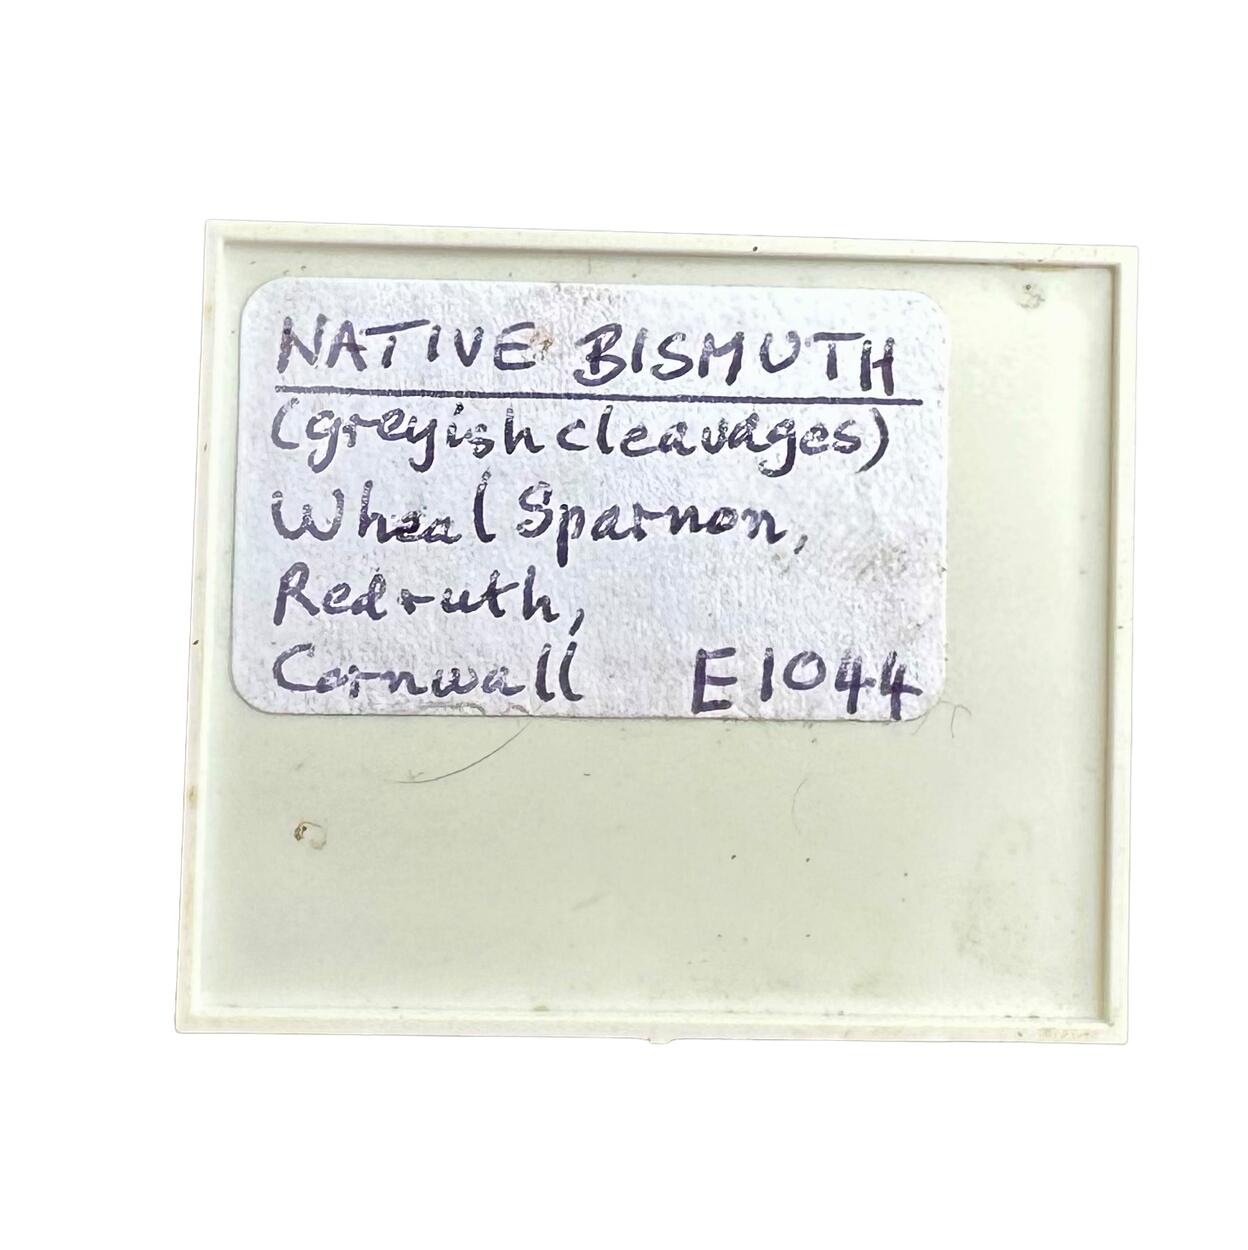 NATIVE BISMUTH
(greyish cleavages)
Wheal Sparnon,
Redruth,
Cornwall E1044